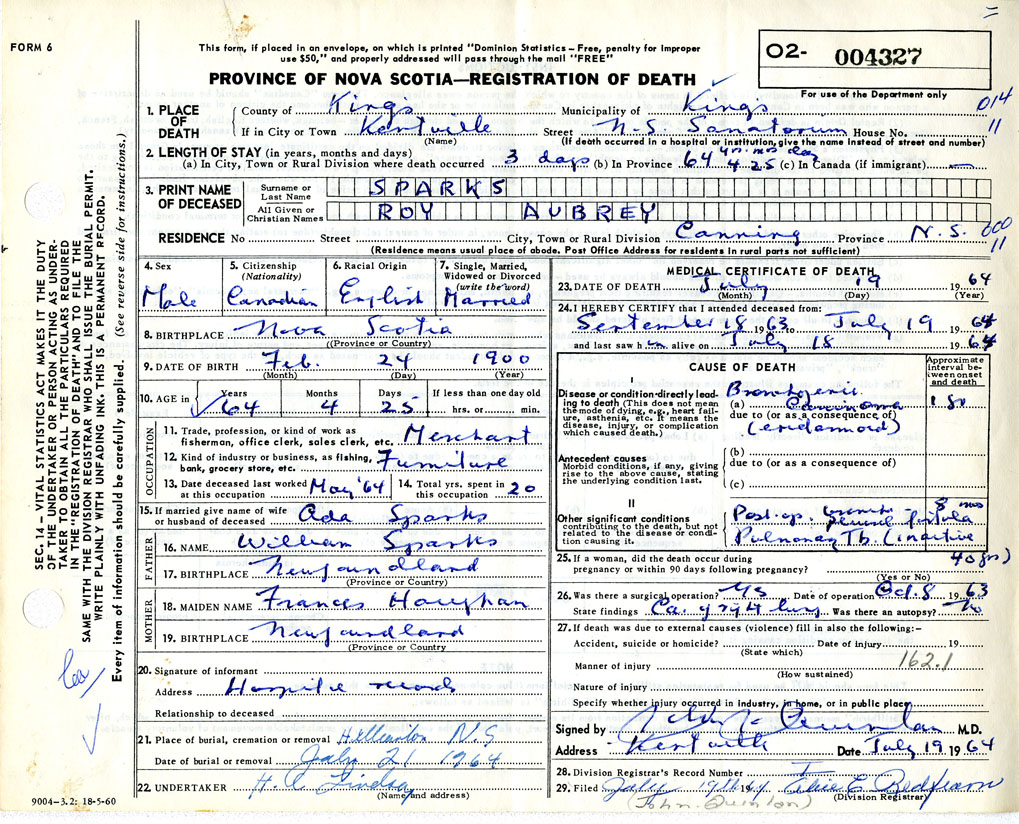 FORM 6
This form, if placed in an envelope, on which is printed "Dominion Statistics – Free, penalty for improper
use $50," and properly addressed will pass through the mail "FREE"
O2- 004327
For use of the Department only
PROVINCE OF NOVA SCOTIA—REGISTRATION OF DEATH
014
11
1. PLACE OF DEATH
County of Kings Municipality of Kings
If in City or Town Kentville Street N.S. Sanatorium House No.
(Name) (If death occurred in a hospital or institution, give the name instead of street and number)
2. LENGTH OF STAY (in years, months and days)
(a) In City, Town or Rural Division where death occurred 3 days (b) In Province 64 yrs 4 mos 25 day (c) In Canada (if immigrant) —
3. PRINT NAME OF DECEASED
Surname or Last Name SPARKS
All Given or Christian Names ROY AUBREY
RESIDENCE No Street City, Town or Rural Division Canning Province N.S.
000
11
(Residence means usual place of abode. Post Office Address for residents in rural parts not sufficient)
4. Sex Male
5. Citizenship (Nationality) Canadian
6. Racial Origin English
7. Single, Married, Widowed or Divorced (write the word) Married
8. BIRTHPLACE Nova Scotia
(Province or Country)
9. DATE OF BIRTH Feb. 24 1900
(Month) (Day) (Year)
10. AGE in Years 64 Months 4 Days 25 If less than one day old hrs. or min.
OCCUPATION
11. Trade, profession, or kind of work as fisherman, office clerk, sales clerk, etc. Merchant
12. Kind of industry or business, as fishing, bank, grocery store, etc. Furniture
13. Date deceased last worked at this occupation May '64
14. Total yrs. spent in this occupation 20
15. If married give name of wife or husband of deceased Ada Sparks
FATHER
16. NAME William Sparks
17. BIRTHPLACE Newfoundland
(Province or Country)
MOTHER
18. MAIDEN NAME Frances
19. BIRTHPLACE Newfoundland
(Province or Country
20. Signature of informant
Address Hospital records
Relationship to deceased
21. Place of burial, cremation or removal N.S
Date of burial or removal July 21 1964
22. UNDERTAKER H. C. Lindsay
(Name and address)
9004–3.2: 18-5-60
MEDICAL CERTIFICATE OF DEATH
23. DATE OF DEATH July 19 1964
(Month) (Day) (Year)
24. I HEREBY CERTIFY that I attended deceased from:
September 18 1963 to July 19 1964
and last saw him alive on July 18 1964
CAUSE OF DEATH
Approximate interval between onset and death
I
Disease or condition directly leading to death (This does not mean the mode of dying, e.g., heart failure, asthenia, etc. It means the disease, injury, or complication which caused death.)
(a) Bronchogenic Carcinoma
due to (or as a consequence of)
(epidermoid)
Antecedent causes
Morbid conditions, if any, giving rise to the above cause, stating the underlying condition last.
(b)
due to (or as a consequence of)
(c)
II
Other significant conditions contributing to the death, but not related to the disease or condition causing it.
Post-op. pleural fistula 8 mos
Pulmonary Tb. (inactive
40 yrs)
25. If a woman, did the death occur during pregnancy or within 90 days following pregnancy?
(Yes or No)
26. Was there a surgical operation? Yes Date of operation Oct. 8 1963
State findings Ca. of right lung Was there an autopsy? No
27. If death was due to external causes (violence) fill in also the following:-
Accident, suicide or homicide? Date of injury 19
(State which)
162.1
Manner of injury
(How sustained)
Nature of injury
Specify whether injury occurred in industry, in home, or in public place
Signed by M.D.
Address Kentville Date July 19 1964
28. Division Registrar's Record Number
29. Filed July 19th
(Division Registrar)
(John Quinlan)
SEC. 14 – VITAL STATISTICS ACT MAKES IT THE DUTY
OF THE UNDERTAKER OR PERSON ACTING AS UNDER-
TAKER TO OBTAIN ALL THE PARTICULARS REQUIRED
IN THE "REGISTRATION OF DEATH" AND TO FILE THE
SAME WITH THE DIVISION REGISTRAR WHO SHALL ISSUE THE BURIAL PERMIT.
WRITE PLAINLY WITH UNFADING INK. THIS IS A PERMANENT RECORD.
Every item of information should be carefully supplied. (See reverse side for instructions.)